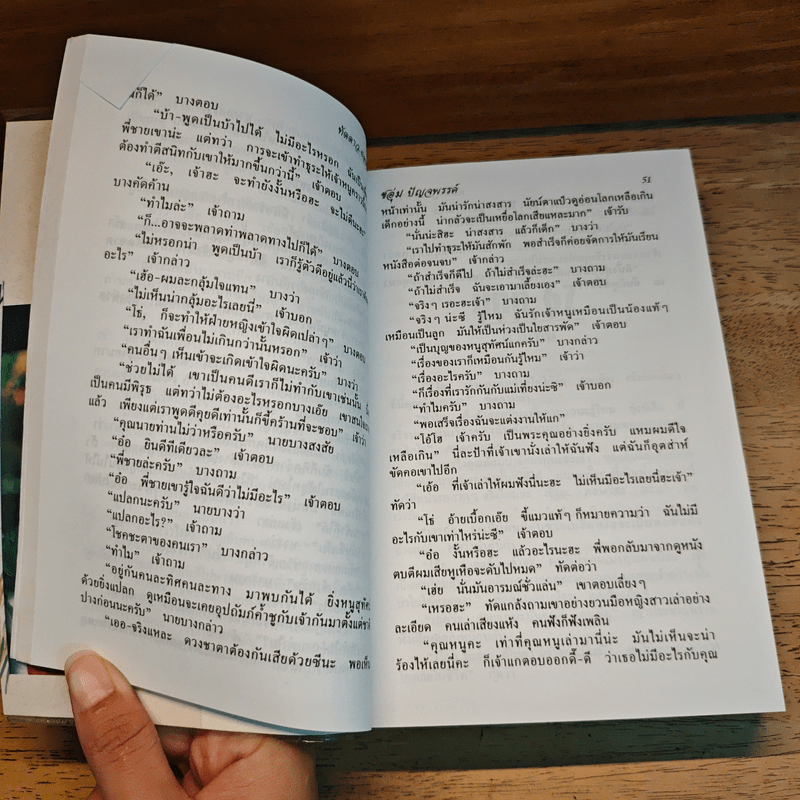 ก็ได้” บางตอบ
“บ้า-พูดเป็นบ้าไปได้ ไม่มีอะไรหรอก
พี่ชายเขาน่ะ แต่ทว่า การจะเข้าทำธุระให้เจ้าหนู
ต้องทำตีสนิทกับเขาให้มากขึ้นกว่านี้” เจ้าตอบ
“เอ๊ะ, เจ้าฮะ จะทำยังงั้นหรือฮะ จะไม่ดีนะคะ”
บางคัดค้าน
“ทำไมล่ะ” เจ้าถาม
“ก็...อาจจะพลาดท่าพลาดทางไปก็ได้” บางตอบ
“ไม่หรอกน่า พูดเป็นบ้า เราก็รู้ตัวดีอยู่แล้วนี่ว่า
อะไร” เจ้ากล่าว
“เฮ้อ-ผมละกลุ้มใจแทน” บางว่า
“ไม่เห็นน่ากลุ้มอะไรเลยนี่” เจ้าบอก
“โธ่, ก็จะทำให้ฝ่ายหญิงเข้าใจผิดเปล่าๆ” บางตอบ
“เราทำฉันเพื่อนไม่เกินกว่านั้นหรอก” เจ้าว่า
“คนอื่นๆ เห็นเข้าจะเกิดเข้าใจผิดนะครับ” บางว่า
“ช่วยไม่ได้ เขาเป็นคนดีเราก็ไม่ทำกับเขาเช่นนั้น
เป็นคนมีพิรุธ แต่ทว่าไม่ต้องอะไรหรอกบางเอ๋ย เขาสนใจ
แล้ว เพียงแต่เราพูดดีคุยดีเท่านั้นก็ขี้คร้านที่จะชอบ” เจ้าว่า
“คุณนายท่านไม่ว่าหรือครับ” นายบางสงสัย
“อ๋อ ยินดีทีเดียวละ” เจ้าตอบ
“พี่ชายล่ะครับ” บางถาม
“อ๋อ พี่ชายเขารู้ใจฉันดีว่าไม่มีอะไร” เจ้าตอบ
“แปลกนะครับ” นายบางว่า
“แปลกอะไร?” เจ้าถาม
“โชคชะตาของคนเรา” บางกล่าว
“ทำไม” เจ้าถาม
“อยู่กันคนละทิศคนละทาง มาพบกันได้ ยิ่งหนูสุทัศน์
ด้วยยิ่งแปลก ดูเหมือนจะเคยอุปถัมภ์ค้ำชูกับเจ้ากันมาตั้งแต่ชาติ
ปางก่อนนะครับ” นายบางกล่าว
“เออ-จริงแหละ ดวงชาตาต้องกันเสียด้วยซีนะ พอเห็น
ชอุ่ม ปัญจพรรค์ 51
หน้าเท่านั้น มันน่ารักน่าสงสาร นัยน์ตาแป๋วดูอ่อนโลกเหลือเกิน
เด็กอย่างนี้ น่ากลัวจะเป็นเหยื่อโลกเสียแหละมาก” เจ้ารับ
“นั่นน่ะสิฮะ น่าสงสาร แล้วก็เด็ก” บางว่า
“เราไปทำธุระให้มันสักพัก พอสำเร็จก็ค่อยจัดการให้มันเรียน
หนังสือต่อจนจบ” เจ้ากล่าว
“ถ้าสำเร็จก็ดีไป ถ้าไม่สำเร็จล่ะฮะ” บางถาม
“ถ้าไม่สำเร็จ ฉันจะเอามาเลี้ยงเอง” เจ้าตอบ
“จริงๆ เรอะฮะเจ้า” บางถาม
“จริงๆ น่ะซี รู้ไหม ฉันรักเจ้าหนูเหมือนเป็นน้องแท้ๆ
เหมือนเป็นลูก มันให้เป็นห่วงเป็นใยสารพัด” เจ้าตอบ
“เป็นบุญของหนูสุทัศน์แกครับ” บางกล่าว
“เรื่องของเราก็เหมือนกันรู้ไหม” เจ้าว่า
“เรื่องอะไรครับ” บางถาม
“ก็เรื่องที่เรารักกันกับแม่เที่ยงน่ะซิ” เจ้าบอก
“ทำไมครับ” บางถาม
“พอเสร็จเรื่องฉันจะแต่งงานให้แก”
“โอ้โฮ เจ้าครับ เป็นพระคุณอย่างยิ่งครับ แหมผมดีใจ
เหลือเกิน” นี่ละป้าที่เจ้าเขานั่งเล่าให้ฉันฟัง แต่ฉันก็อุตส่าห์
ขัดคอเขาไปอีก
“เอ้อ ที่เจ้าเล่าให้ผมฟังนี่นะฮะ ไม่เห็นมีอะไรเลยนี่ฮะเจ้า”
ทัดว่า
“โธ่ อ้ายเบื้อกเอ๊ย ขี้แมวแท้ๆ ก็หมายความว่า ฉันไม่มี
อะไรกับเขาเท่าไหร่น่ะซี” เจ้าตอบ
“อ๋อ งั้นหรือฮะ แล้วอะไรนะฮะ พี่พอกลับมาจากดูหนัง
ตบตีผมเสียหูเหือจะดับไปหมด” ทัดต่อว่า
“เฮ่ย นั่นมันอารมณ์ชั่วแล่น” เขาตอบเลี่ยงๆ
“เหรอฮะ” ทัดแกล้งถามเขาอย่างยวนมือหญิงสาวเล่าอย่าง
ละเอียด คนเล่าเสียงแห้ง คนฟังก็ฟังเพลิน
“คุณหนูคะ เท่าที่คุณหนูเล่ามานี่น่ะ มันไม่เห็นจะน่า
ร้องไห้เลยนี่คะ ก็เจ้าแกตอบออกดี๊-ดี ว่าเธอไม่มีอะไรกับคุณ